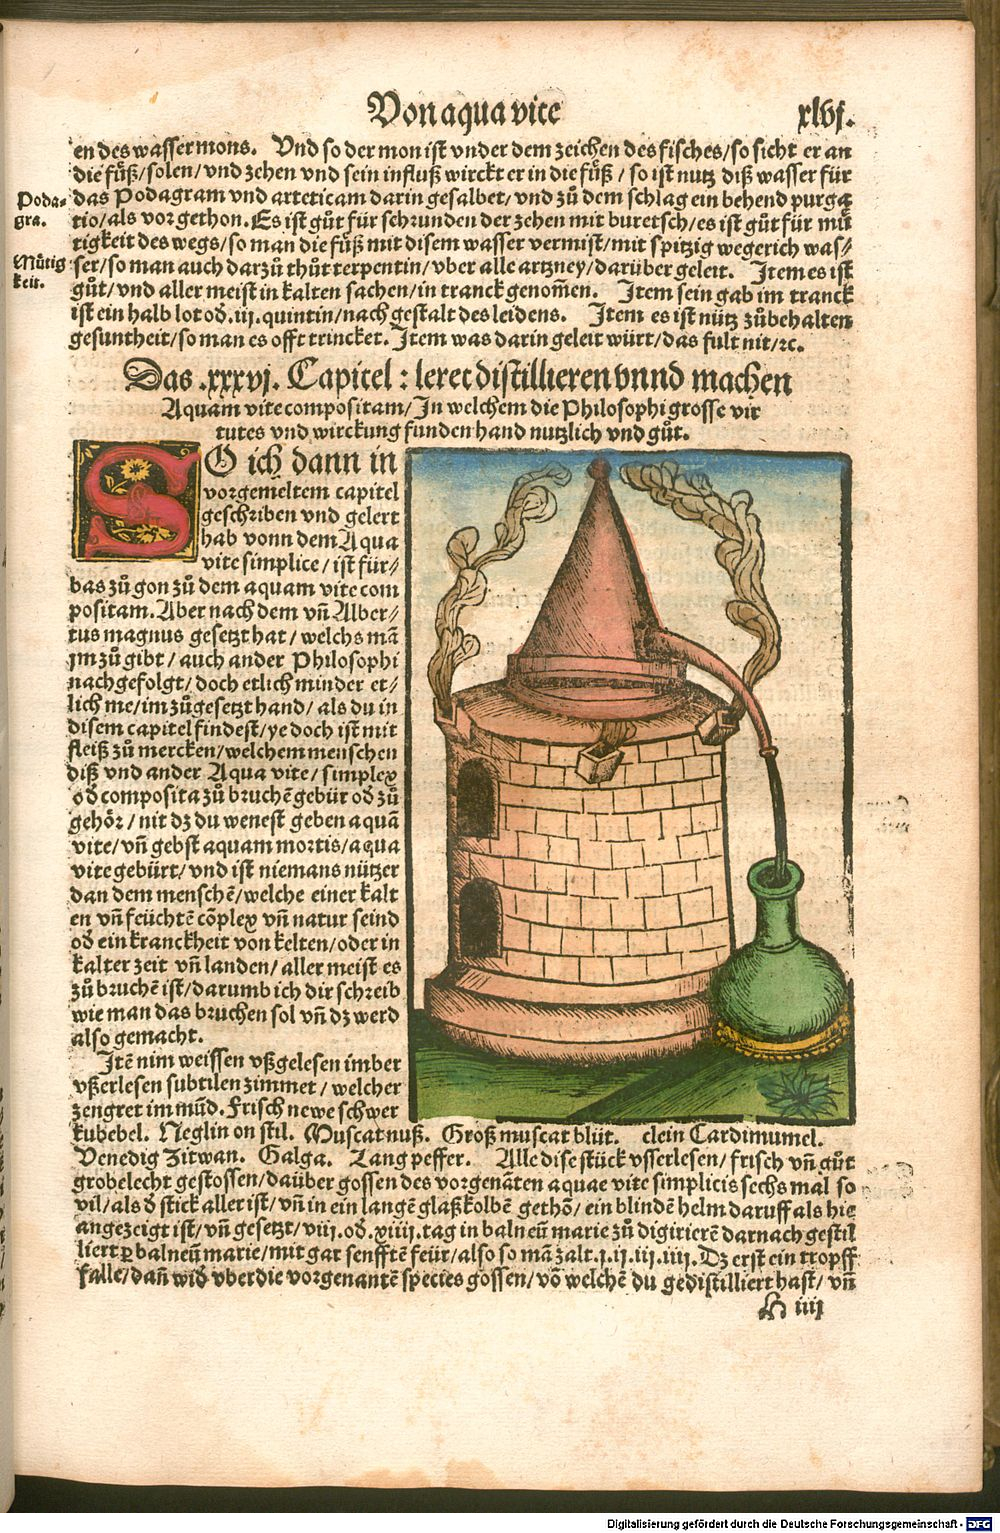 Von aqua vite
xlvj.
en des wasser mons. Vnd so der mon ist vnder dem zeichen des fisches/so sicht er an
die fůß/solen/vnd zehen vnd sein influß wirckt er in die fůß/so ist nutz diß wasser für
Poda=
gra.
das Podagram vnd arteticam darin gesalbet/vnd zů dem schlag ein behend purga
tio/als vor gethon. Es ist gůt für schrunden der zehen mit buretsch/es ist gůt für mů
Můtig
keit.
tigkeit des wegs/so man die fůß mit disem wasser vermist/mit spitzig wegerich was/
ser/so man auch darzů thůt terpentin/vber alle artzney/darüber geleit. Item es ist
gůt/vnd aller meist in kalten sachen/in tranck genom̃en. Item sein gab im tranck
ist ein halb lot od̕.iij.quintin/nach gestalt des leidens. Item es ist nütz zůbehalten
gesuntheit/so man es offt trincket. Item was darin geleit würt/das fult nit/ꝛc.
Das .xxxvj. Capitel : leret distillieren vnnd machen
Aquam vite compositam/In welchem die Philosophi grosse vir
tutes vnd wirckung funden hand nutzlich vnd gůt.
SO ich dann in
vorgemeltem capitel
geschriben vnd gelert
hab vonn dem Aqua
vite simplice/ist für/
bas zů gon zů dem aquam vite com
positam. Aber nach dem vñ Alber/
tus magnus gesetzt hat/welchs mã
jm zů gibt/auch ander Philosophi
nachgefolgt/doch etlich minder et/
lich me/im zůgesetzt hand/als du in
disem capitel findest/ye doch ist mit
fleiß zů mercken/welchem menschen
diß vnd ander Aqua vite/simplex
od̕ composita zů bruchẽ gebür od̕ zů
gehôr/nit dz du wenest geben aquã
vite/vñ gebst aquam mortis/aqua
vite gebürt/vnd ist niemans nützer
dan dem menschẽ/welche einer kalt
en vñ feüchtẽ cõplex vñ natur seind
od̕ ein kranckheit von kelten/oder in
kalter zeit vñ landen/aller meist es
zů bruchẽ ist/darumb ich dir schreib
wie man das bruchen sol vñ dz werd
also gemacht.
Itẽ nim weissen vßgelesen imber
vßerlesen subtilen zimmet/welcher
zengret im mũd. Frisch newe schwer
kubebel. Neglin on stil. Muscat nuß. Groß muscat blüt. clein Cardimumel.
Venedig Zitwan. Galga. Lang peffer. Alle dise stück vsserlesen/frisch vñ gůt
grobelecht gestossen/daüber gossen des vorgenãten aquae vite simplicis sechs mal so
vil/als d̕ stick aller ist/vñ in ein langẽ glaßkolbẽ gethõ/ein blindẽ helm daruff als hie
angezeigt ist/vñ gesetzt/viij.od̕.xiiij.tag in balneũ marie zů digirierẽ darnach gestil
liert ꝑ balneũ marie/mit gar senfftẽ feür/also so mã zalt.j.ij.iij.iiij.Dz erst ein tropff
falle/dañ wid̕ vber die vorgenantẽ species gossen/võ welchẽ du gedistilliert hast/vñ
H iiij
Digitalisierung gefördert durch die Deutsche Forschungsgemeinschaft - DFG